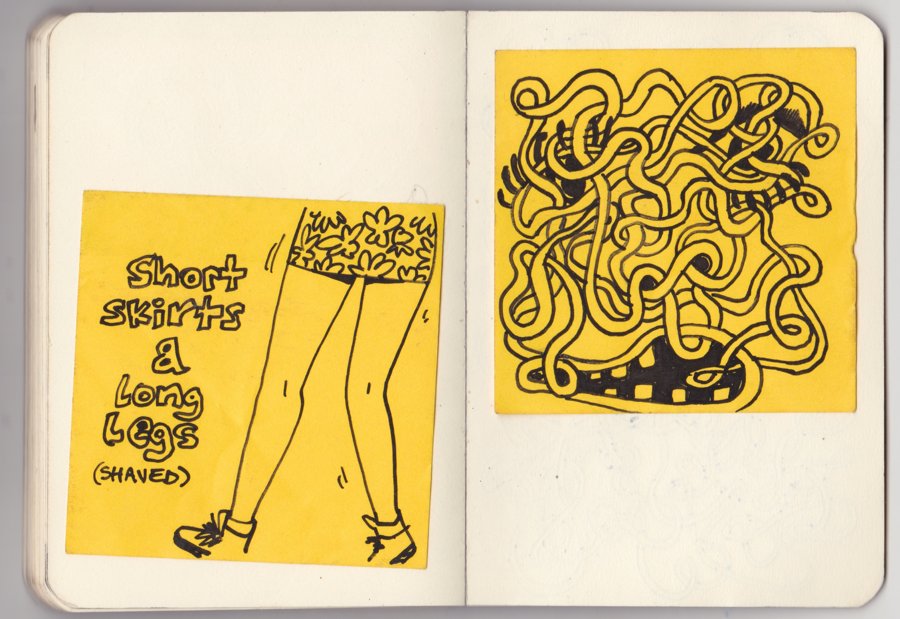 Short
skirts
a
long
Legs
(SHAVED)